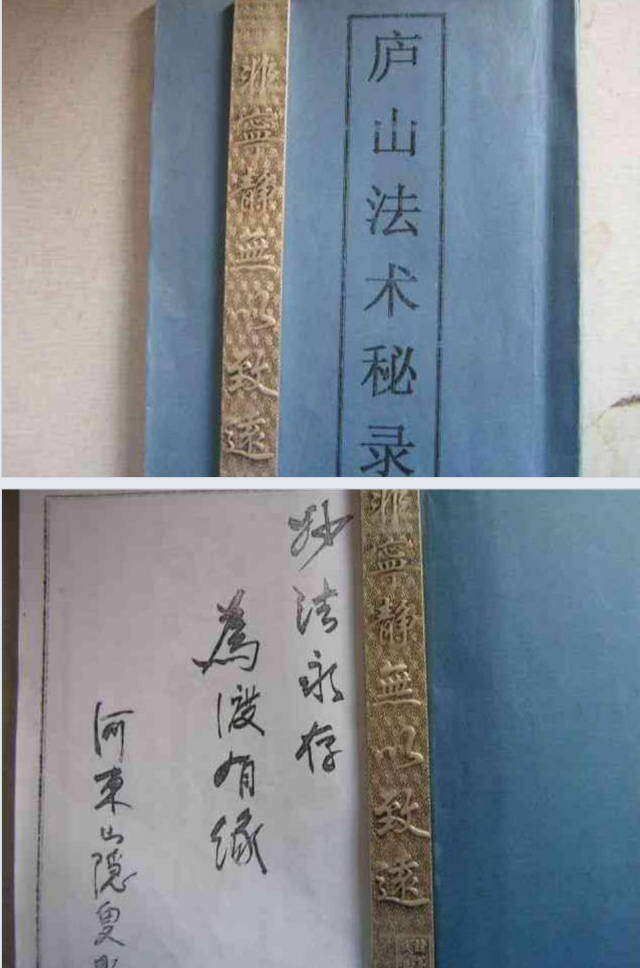 庐山法术秘录
非寧静無以致遠
非寧静無以致遠
妙法永存
為渡有緣
河東山隱叟